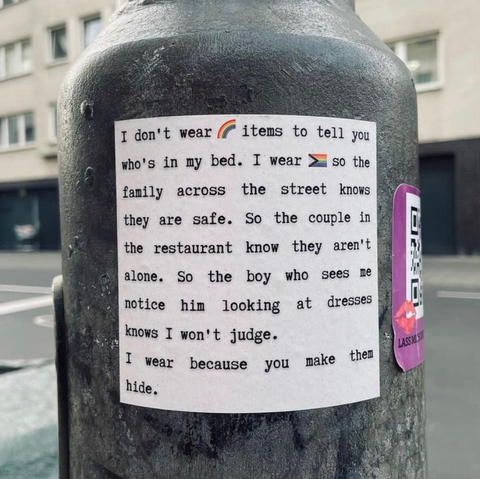 I don't wear 🌈 items to tell you
who's in my bed. I wear 🏳️‍🌈 so the
family across the street knows
they are safe. So the couple in
the restaurant know they aren't
alone. So the boy who sees me
notice him looking at dresses
knows I won't judge.
I wear because you make them
hide.